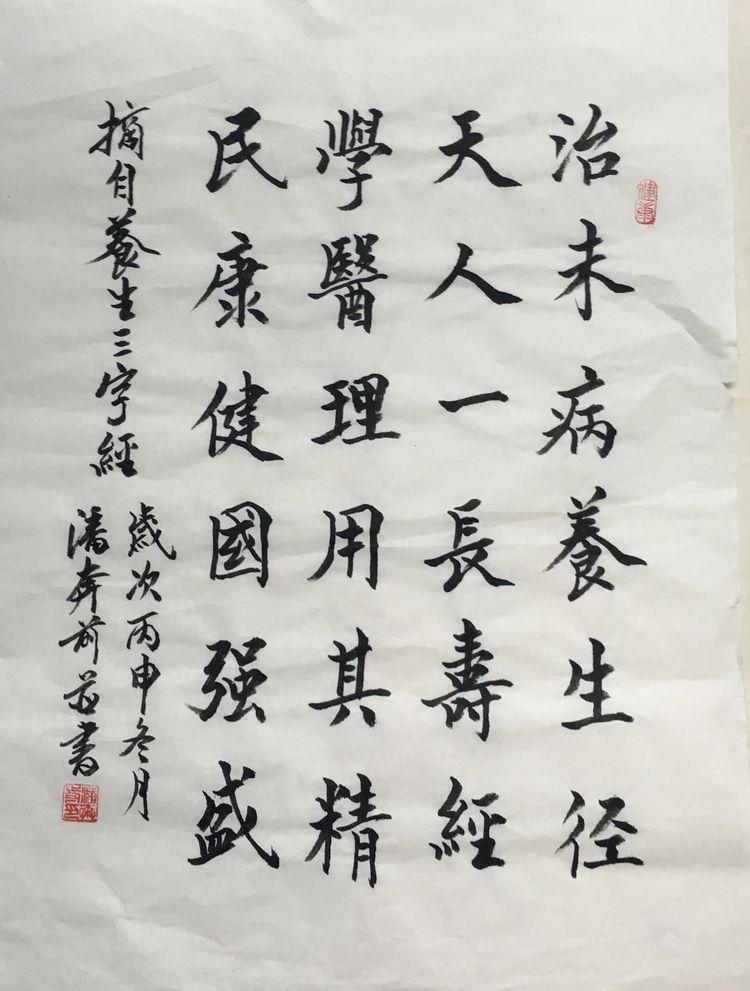 治未病養生径
天人一長壽經
學醫理用其精
民康健國强盛
摘自養生三字經
歲次丙申冬月
潘奔前並書